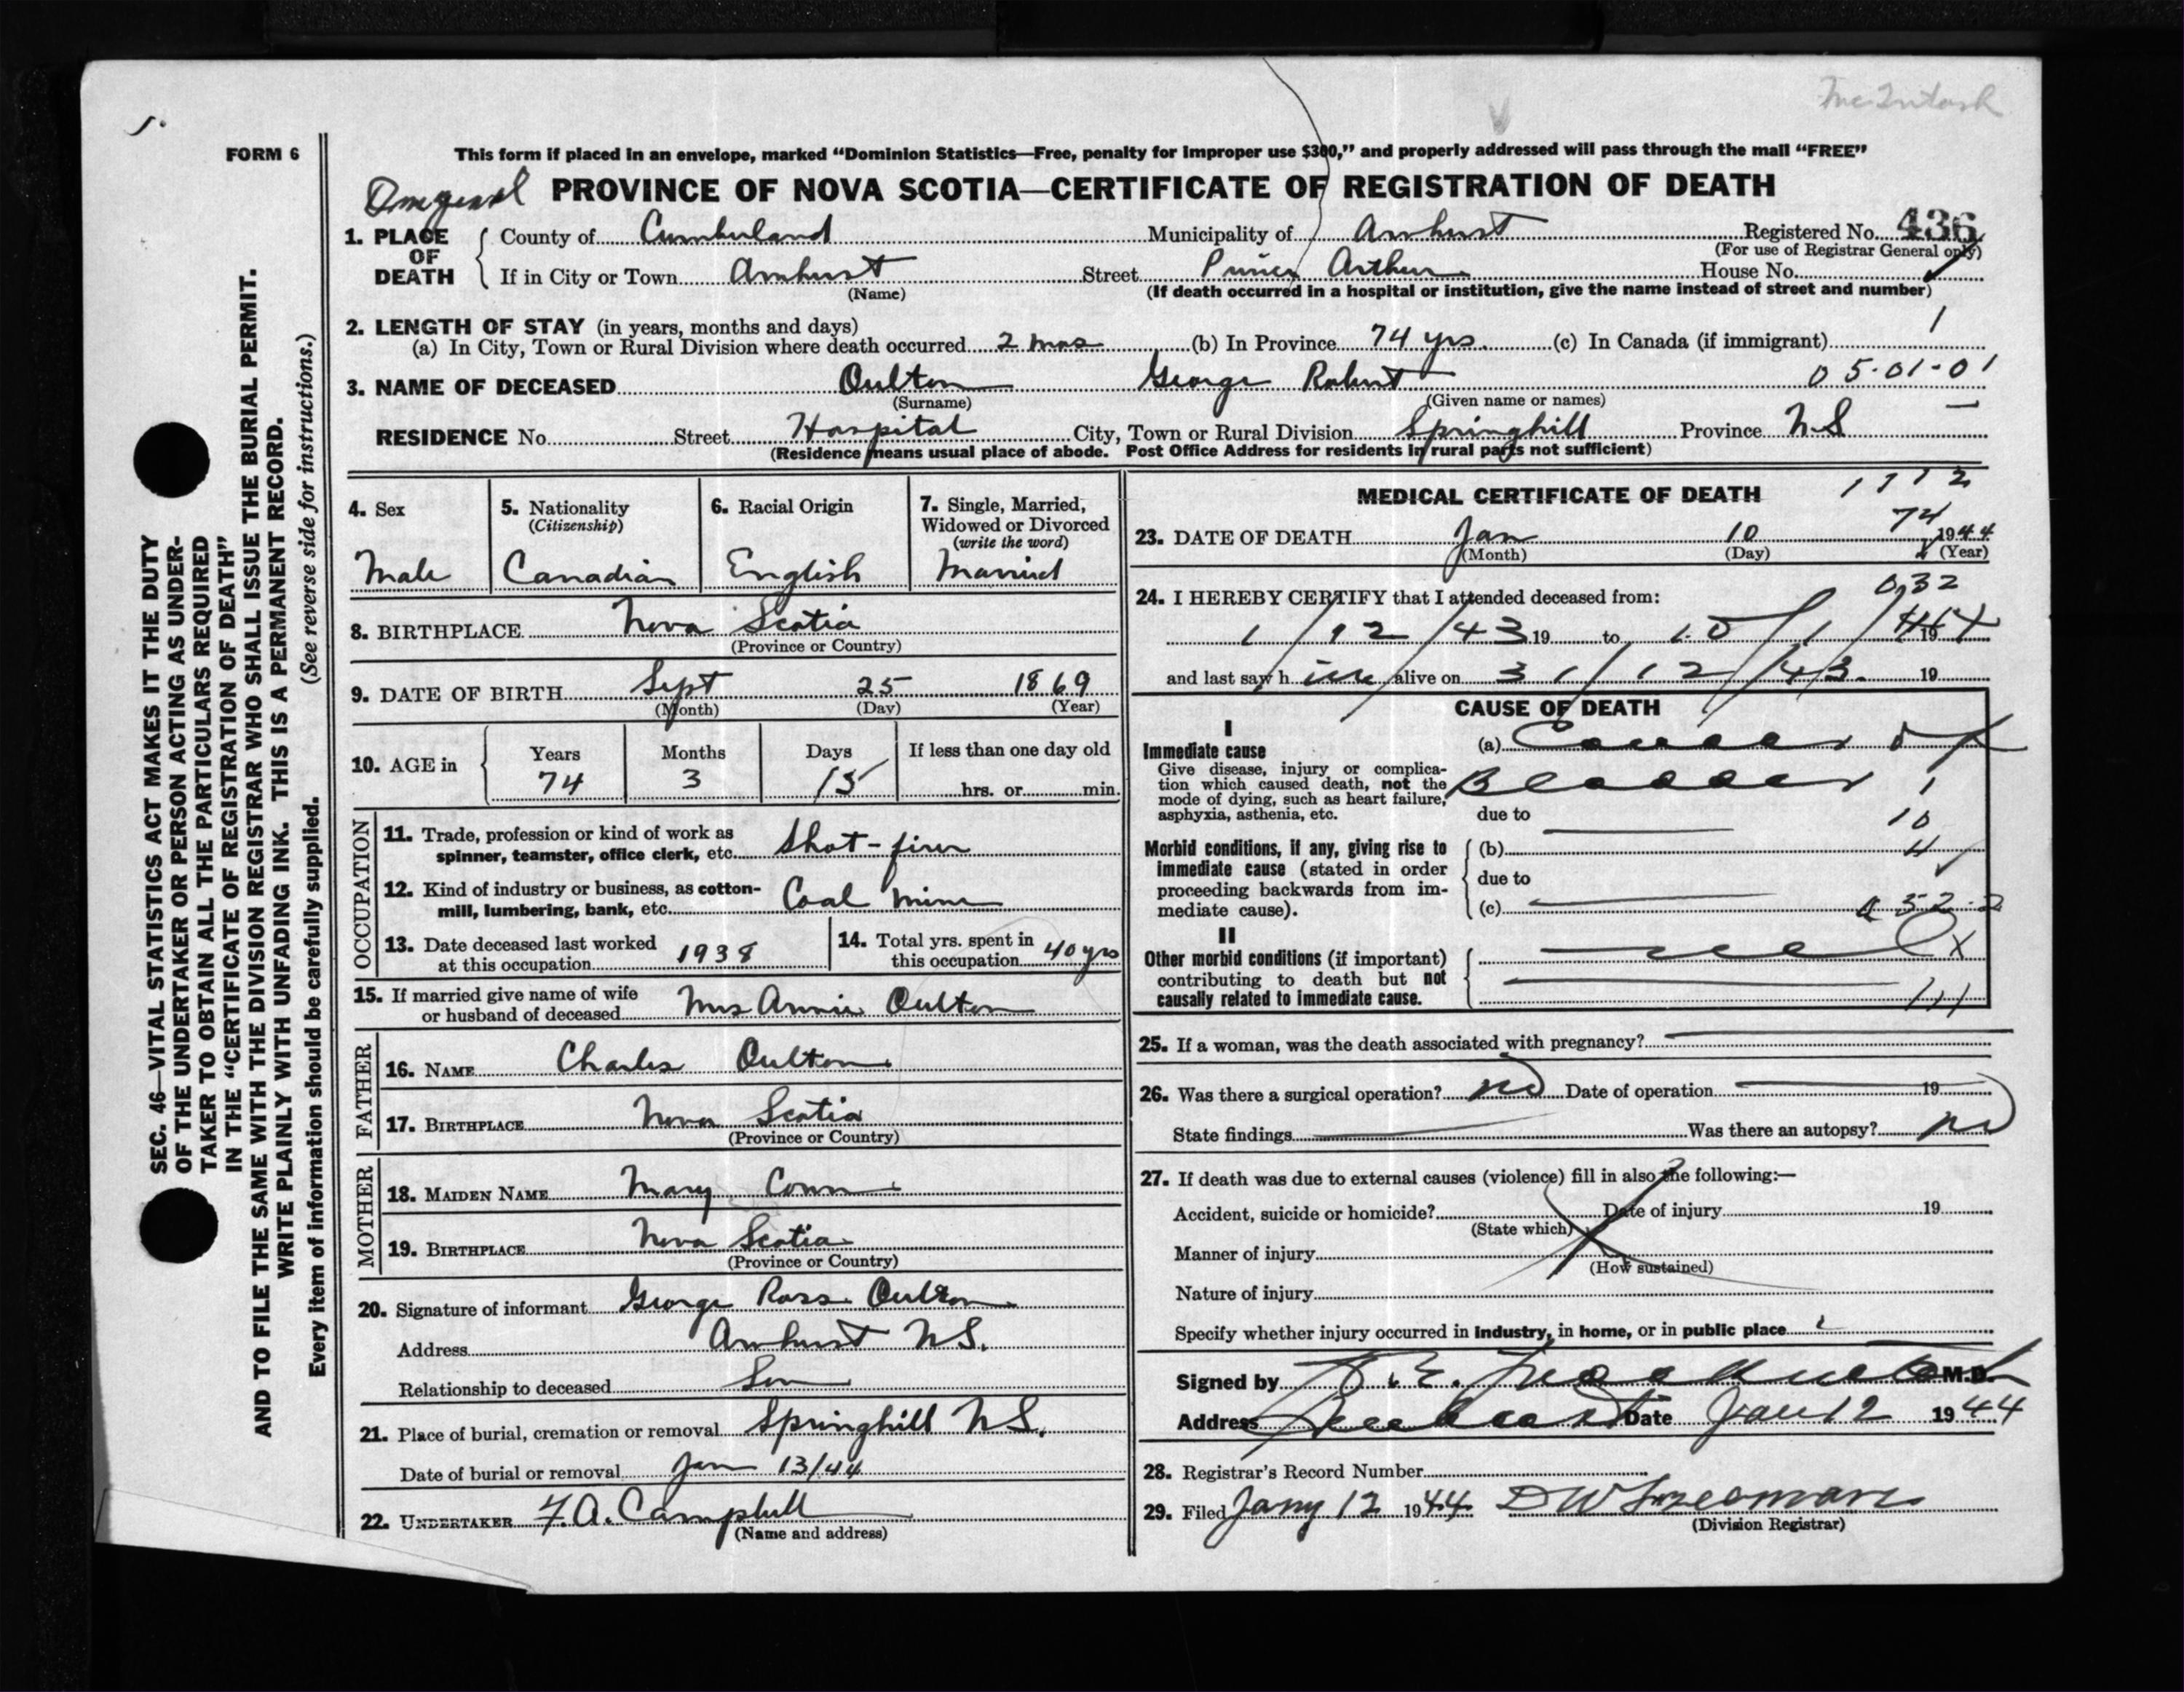 McIntosh
FORM 6
This form if placed in an envelope, marked “Dominion Statistics—Free, penalty for improper use $300,” and properly addressed will pass through the mail “FREE”
PROVINCE OF NOVA SCOTIA—CERTIFICATE OF REGISTRATION OF DEATH
1. PLACE OF DEATH County of Cumberland Municipality of Amherst Registered No. 436
(For use of Registrar General only)
If in City or Town Amherst Street Prince Arthur House No.
(Name) (If death occurred in a hospital or institution, give the name instead of street and number)
2. LENGTH OF STAY (in years, months and days) 1
(a) In City, Town or Rural Division where death occurred 2 mos (b) In Province 74 yrs. (c) In Canada (if immigrant)
3. NAME OF DECEASED Oulton George Robert 05-01-01
(Surname) (Given name or names)
RESIDENCE No. Street Hospital City, Town or Rural Division Springhill Province N.S
(Residence means usual place of abode. Post Office Address for residents in rural parts not sufficient)
4. Sex 5. Nationality (Citizenship) 6. Racial Origin 7. Single, Married, Widowed or Divorced (write the word)
Male Canadian English Married
8. BIRTHPLACE Nova Scotia
(Province or Country)
9. DATE OF BIRTH Sept 25 1869
(Month) (Day) (Year)
10. AGE in Years Months Days If less than one day old
74 3 15 hrs. or min.
OCCUPATION
11. Trade, profession or kind of work as
spinner, teamster, office clerk, etc. Shot-firer
12. Kind of industry or business, as cotton-
mill, lumbering, bank, etc. Coal mine
13. Date deceased last worked
at this occupation 1938
14. Total yrs. spent in
this occupation 40 yrs
15. If married give name of wife
or husband of deceased Mrs Annie Oulton
FATHER
16. NAME Charles Oulton
17. BIRTHPLACE Nova Scotia
(Province or Country)
MOTHER
18. MAIDEN NAME Mary Conn
19. BIRTHPLACE Nova Scotia
(Province or Country)
20. Signature of informant George Ross Oulton
Address Amherst N.S.
Relationship to deceased Son
21. Place of burial, cremation or removal Springhill N.S.
Date of burial or removal Jan 13/44
22. UNDERTAKER F.A. Campbell
(Name and address)
MEDICAL CERTIFICATE OF DEATH
23. DATE OF DEATH Jan 10 1944
(Month) (Day) (Year)
74
032
24. I HEREBY CERTIFY that I attended deceased from:
1/12/43 19 to 10/1/44 19
and last saw h im alive on 31/12/43. 19
CAUSE OF DEATH
I
Immediate cause
Give disease, injury or complica-
tion which caused death, not the
mode of dying, such as heart failure,
asphyxia, asthenia, etc.
(a) Cancer of
Bladder
due to
Morbid conditions, if any, giving rise to
immediate cause (stated in order
proceeding backwards from im-
mediate cause).
(b)
due to
(c)
1
10
II
Other morbid conditions (if important)
contributing to death but not
causally related to immediate cause.
25. If a woman, was the death associated with pregnancy?
26. Was there a surgical operation? no Date of operation 19
State findings Was there an autopsy? no
27. If death was due to external causes (violence) fill in also the following:—
Accident, suicide or homicide? Date of injury 19
(State which)
Manner of injury
(How sustained)
Nature of injury
Specify whether injury occurred in industry, in home, or in public place
Signed by M.D.
Address Amherst Date Jan 12 1944
28. Registrar's Record Number
29. Filed Jany 12 1944
(Division Registrar)
SEC. 46—VITAL STATISTICS ACT MAKES IT THE DUTY
OF THE UNDERTAKER OR PERSON ACTING AS UNDER-
TAKER TO OBTAIN ALL THE PARTICULARS REQUIRED
IN THE “CERTIFICATE OF REGISTRATION OF DEATH”
AND TO FILE THE SAME WITH THE DIVISION REGISTRAR WHO SHALL ISSUE THE BURIAL PERMIT.
WRITE PLAINLY WITH UNFADING INK. THIS IS A PERMANENT RECORD.
Every item of information should be carefully supplied. (See reverse side for instructions.)